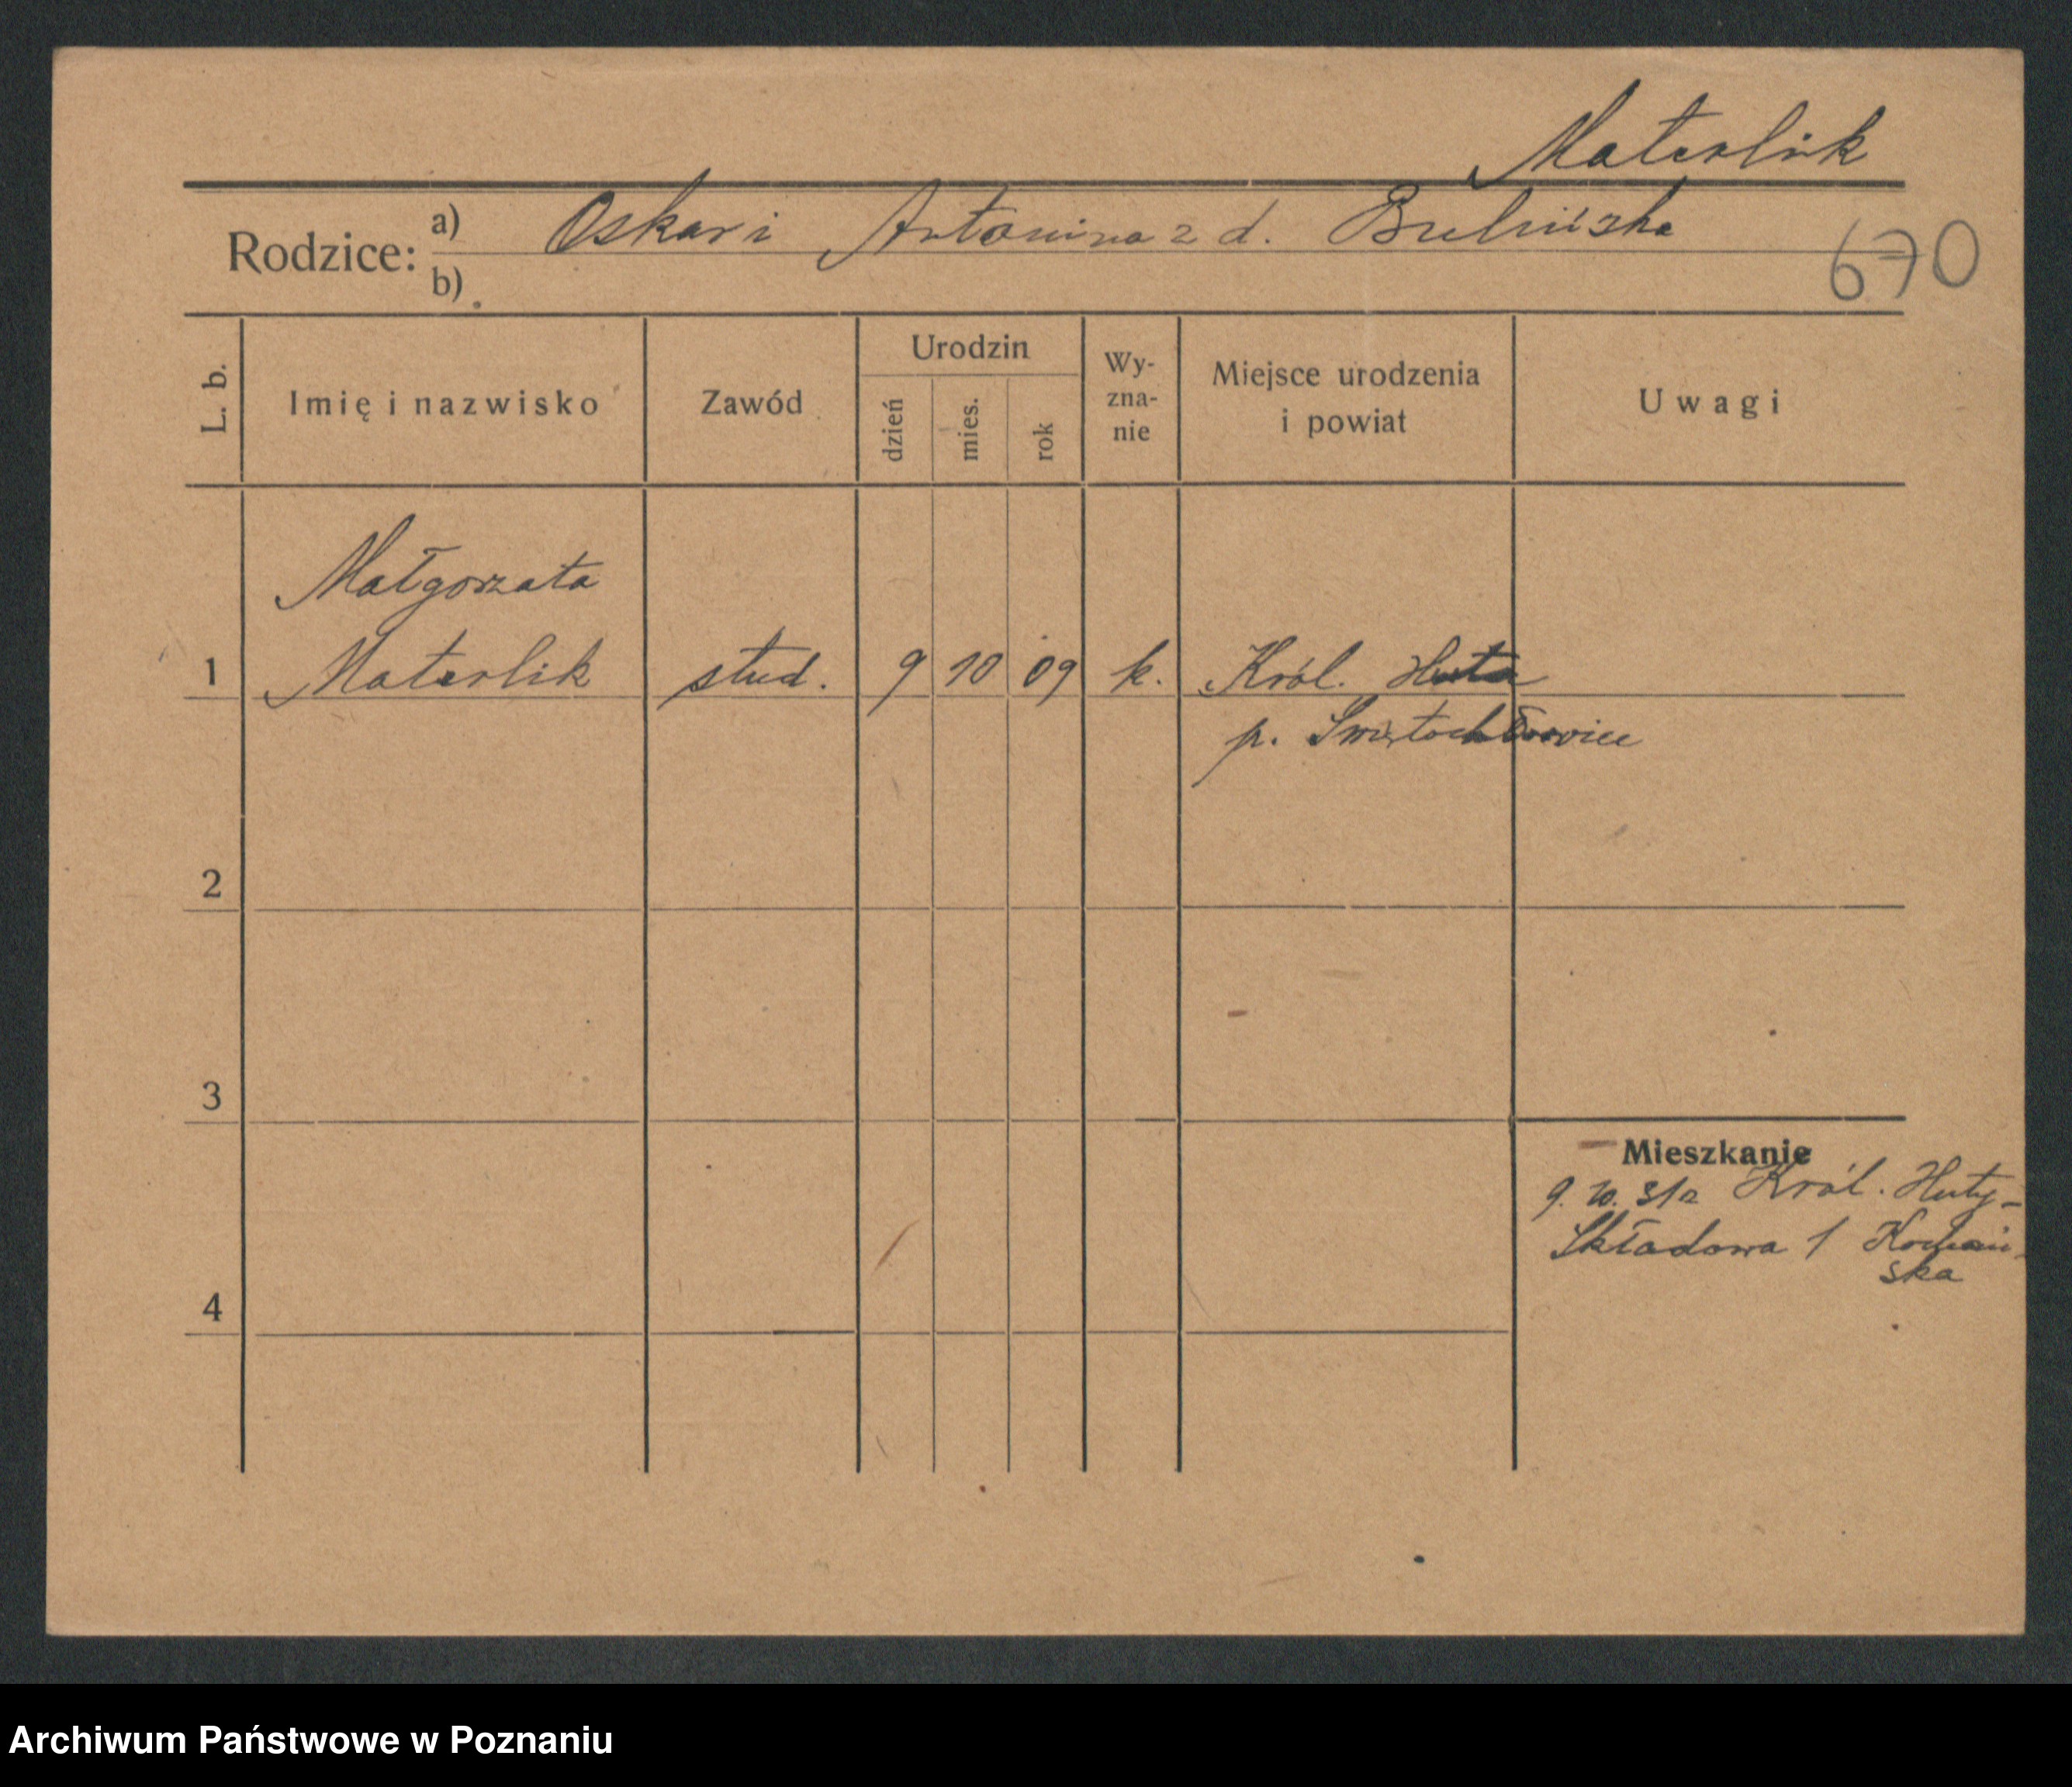 Materlik
Rodzice: a) Oskar i Antonina z d.
b)
670
L. b.
Imię i nazwisko
Zawód
Urodzin
dzień
mies.
rok
Wy-
zna-
nie
Miejsce urodzenia
i powiat
Uwagi
Małgorzata
1 Materlik stud. 9 10 09 k. Król. Huta
p. Świętochłowice
2
3
Mieszkanie
9. 10. 31 z Król. Huty-
Składowa 1
ska
4
Archiwum Państwowe w Poznaniu